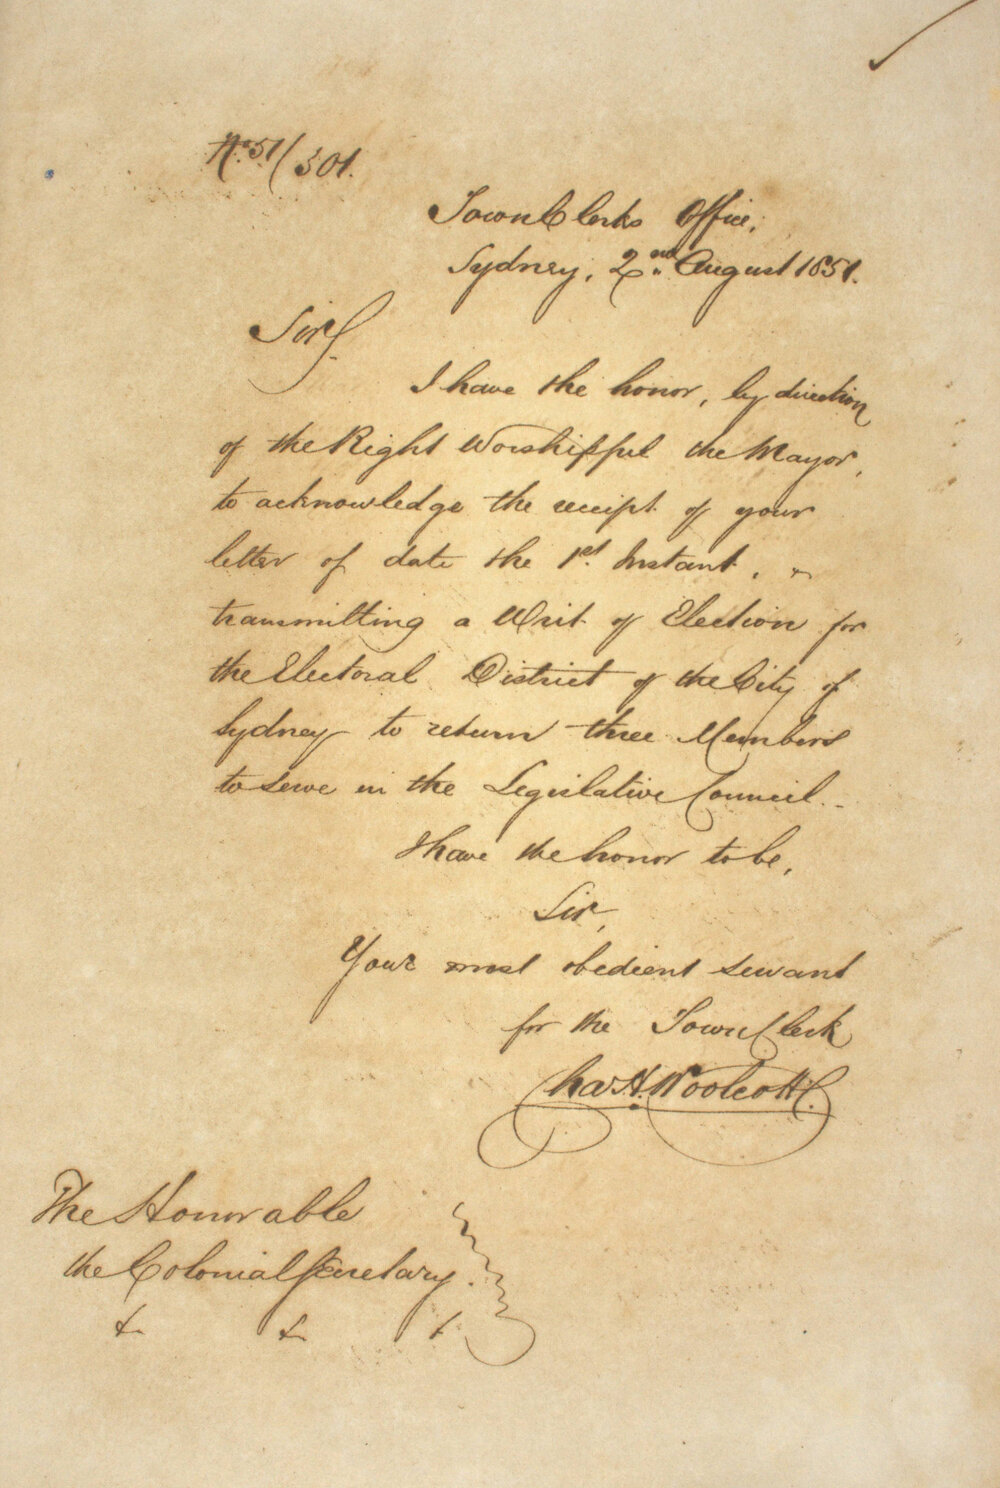 No. 51/301.
Town Clerks Office,
Sydney, 2nd. August 1851.
Sir,
I have the honor, by direction
of the Right Worshipful the Mayor,
to acknowledge the receipt of your
letter of date the 1st. Instant, &
transmitting a Writ of Election for
the Electoral District of the City of
Sydney to return three Members
to serve in the Legislative Council.
I have the honor to be,
Sir,
Your most obedient servant
for the Town Clerk
Chas H. Woolcott
The Honorable
the Colonial Secretary.
& & &